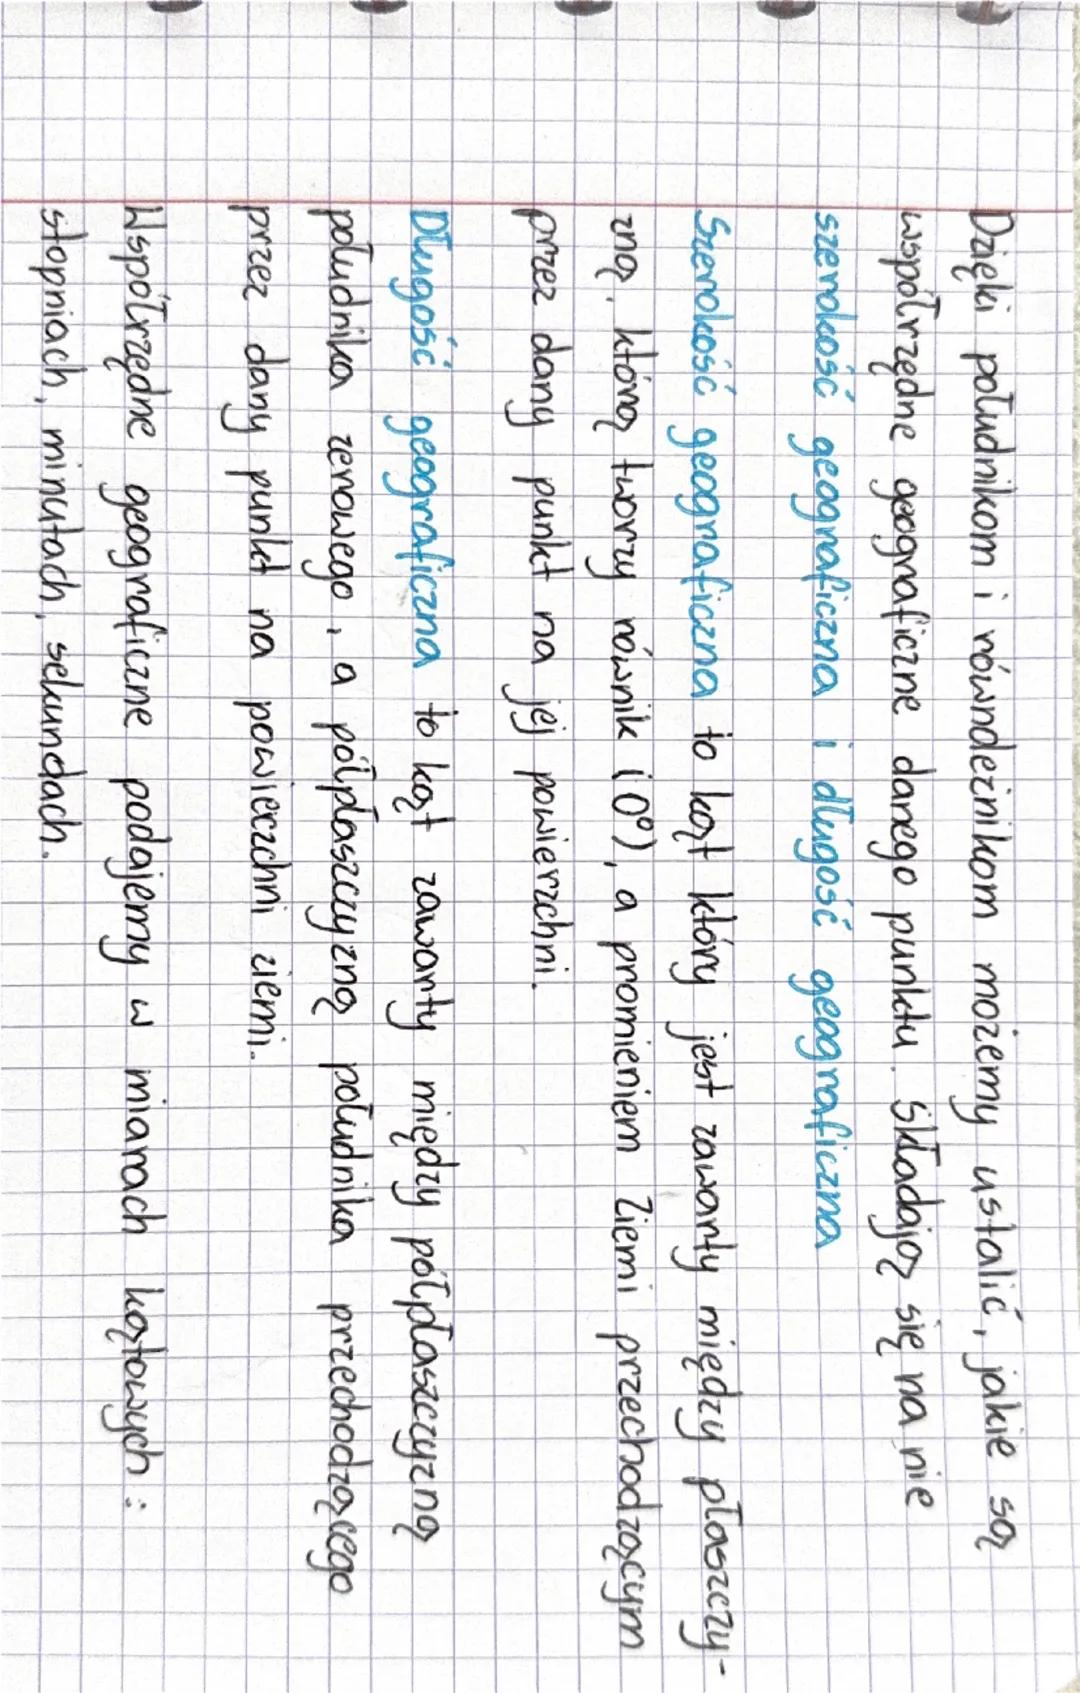 Dzięki południkom i równoleżnikom możemy ustalić, jakie są
współrzędne geograficzne danego punktu. Składają się na nie
szerokość geograficzna i długość geograficzna
Szerokość geograficzna to kąt który jest zawarty między płaszczy-
zną, którą tworzy równik (0°), a promieniem Ziemi przechodzącym
przez dany punkt na jej powierzchni.
Długość geograficzna to kąt zawarty między półpłaszczyzną
południka zerowego, a półpłaszczyzną południka przechodzącego
przez dany punkt na powierzchni ziemi.
Współrzędne geograficzne podajemy w miarach kątowych:
stopniach, minutach, sekundach.